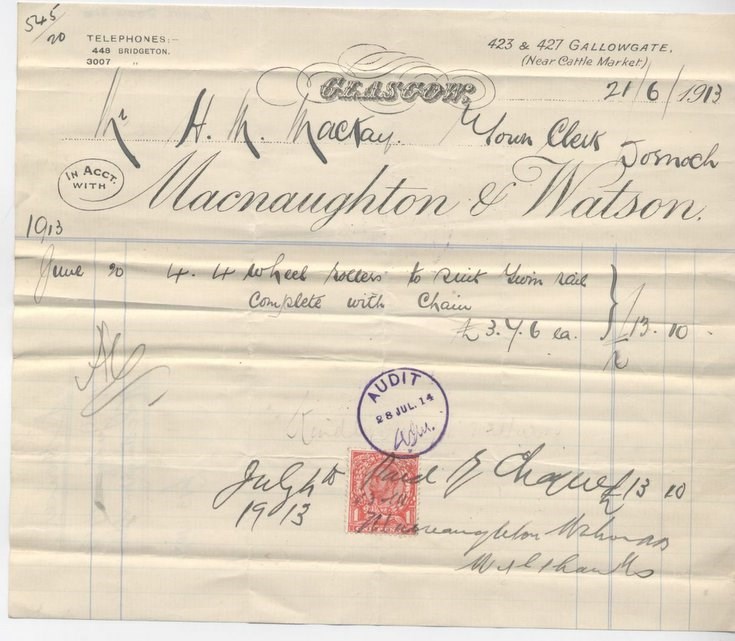 545/20
TELEPHONES:-
448 BRIDGETON.
3007 "
423 & 427 GALLOWGATE.
(Near Cattle Market)
GLASGOW.
21/6/1913
Mr H. M. Mackay. Town Clerk Dornoch
IN ACCT. WITH
Macnaughton & Watson.
1913
June 20 4. 4 wheel rollers to suit Twin rail
complete with Chain
£3.7.6 ea. £13.10
AUDIT
28 JUL. 14
July
1913
Paid by Cheque £13 10
Macnaughton & Watson
With thanks